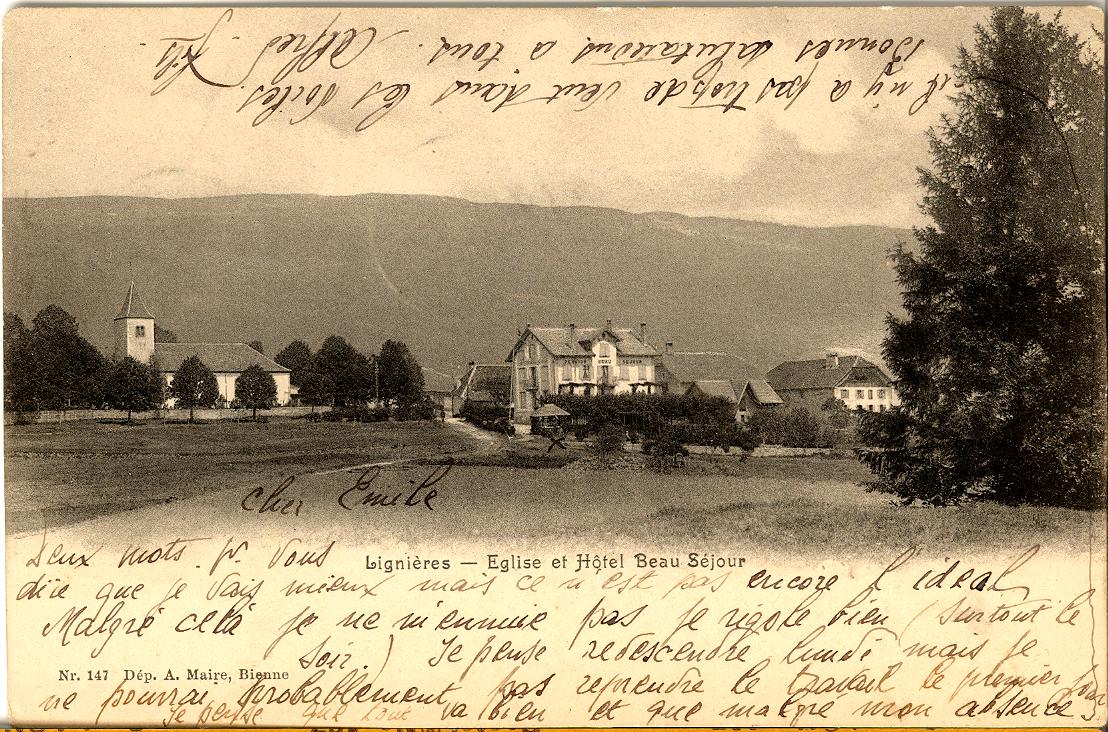 cher Emile
Deux mots pr vous
dire que je vais mieux mais ce n'est pas encore l'ideal
Malgré celà je ne m'ennuie pas je rigole bien (surtout le
soir.) Je pense redescendre lundi mais je
ne pourrai probablement pas reprendre le travail le premier jour
Je pense que tout va bien et que malgré mon absence
il n'y a pas trop de vent dans les voiles.
Bonnes salutations a tous. Alfred fils.
PENSION BEAU SÉJOUR
Lignières — Eglise et Hôtel Beau Séjour
Nr. 147 Dép. A. Maire, Bienne